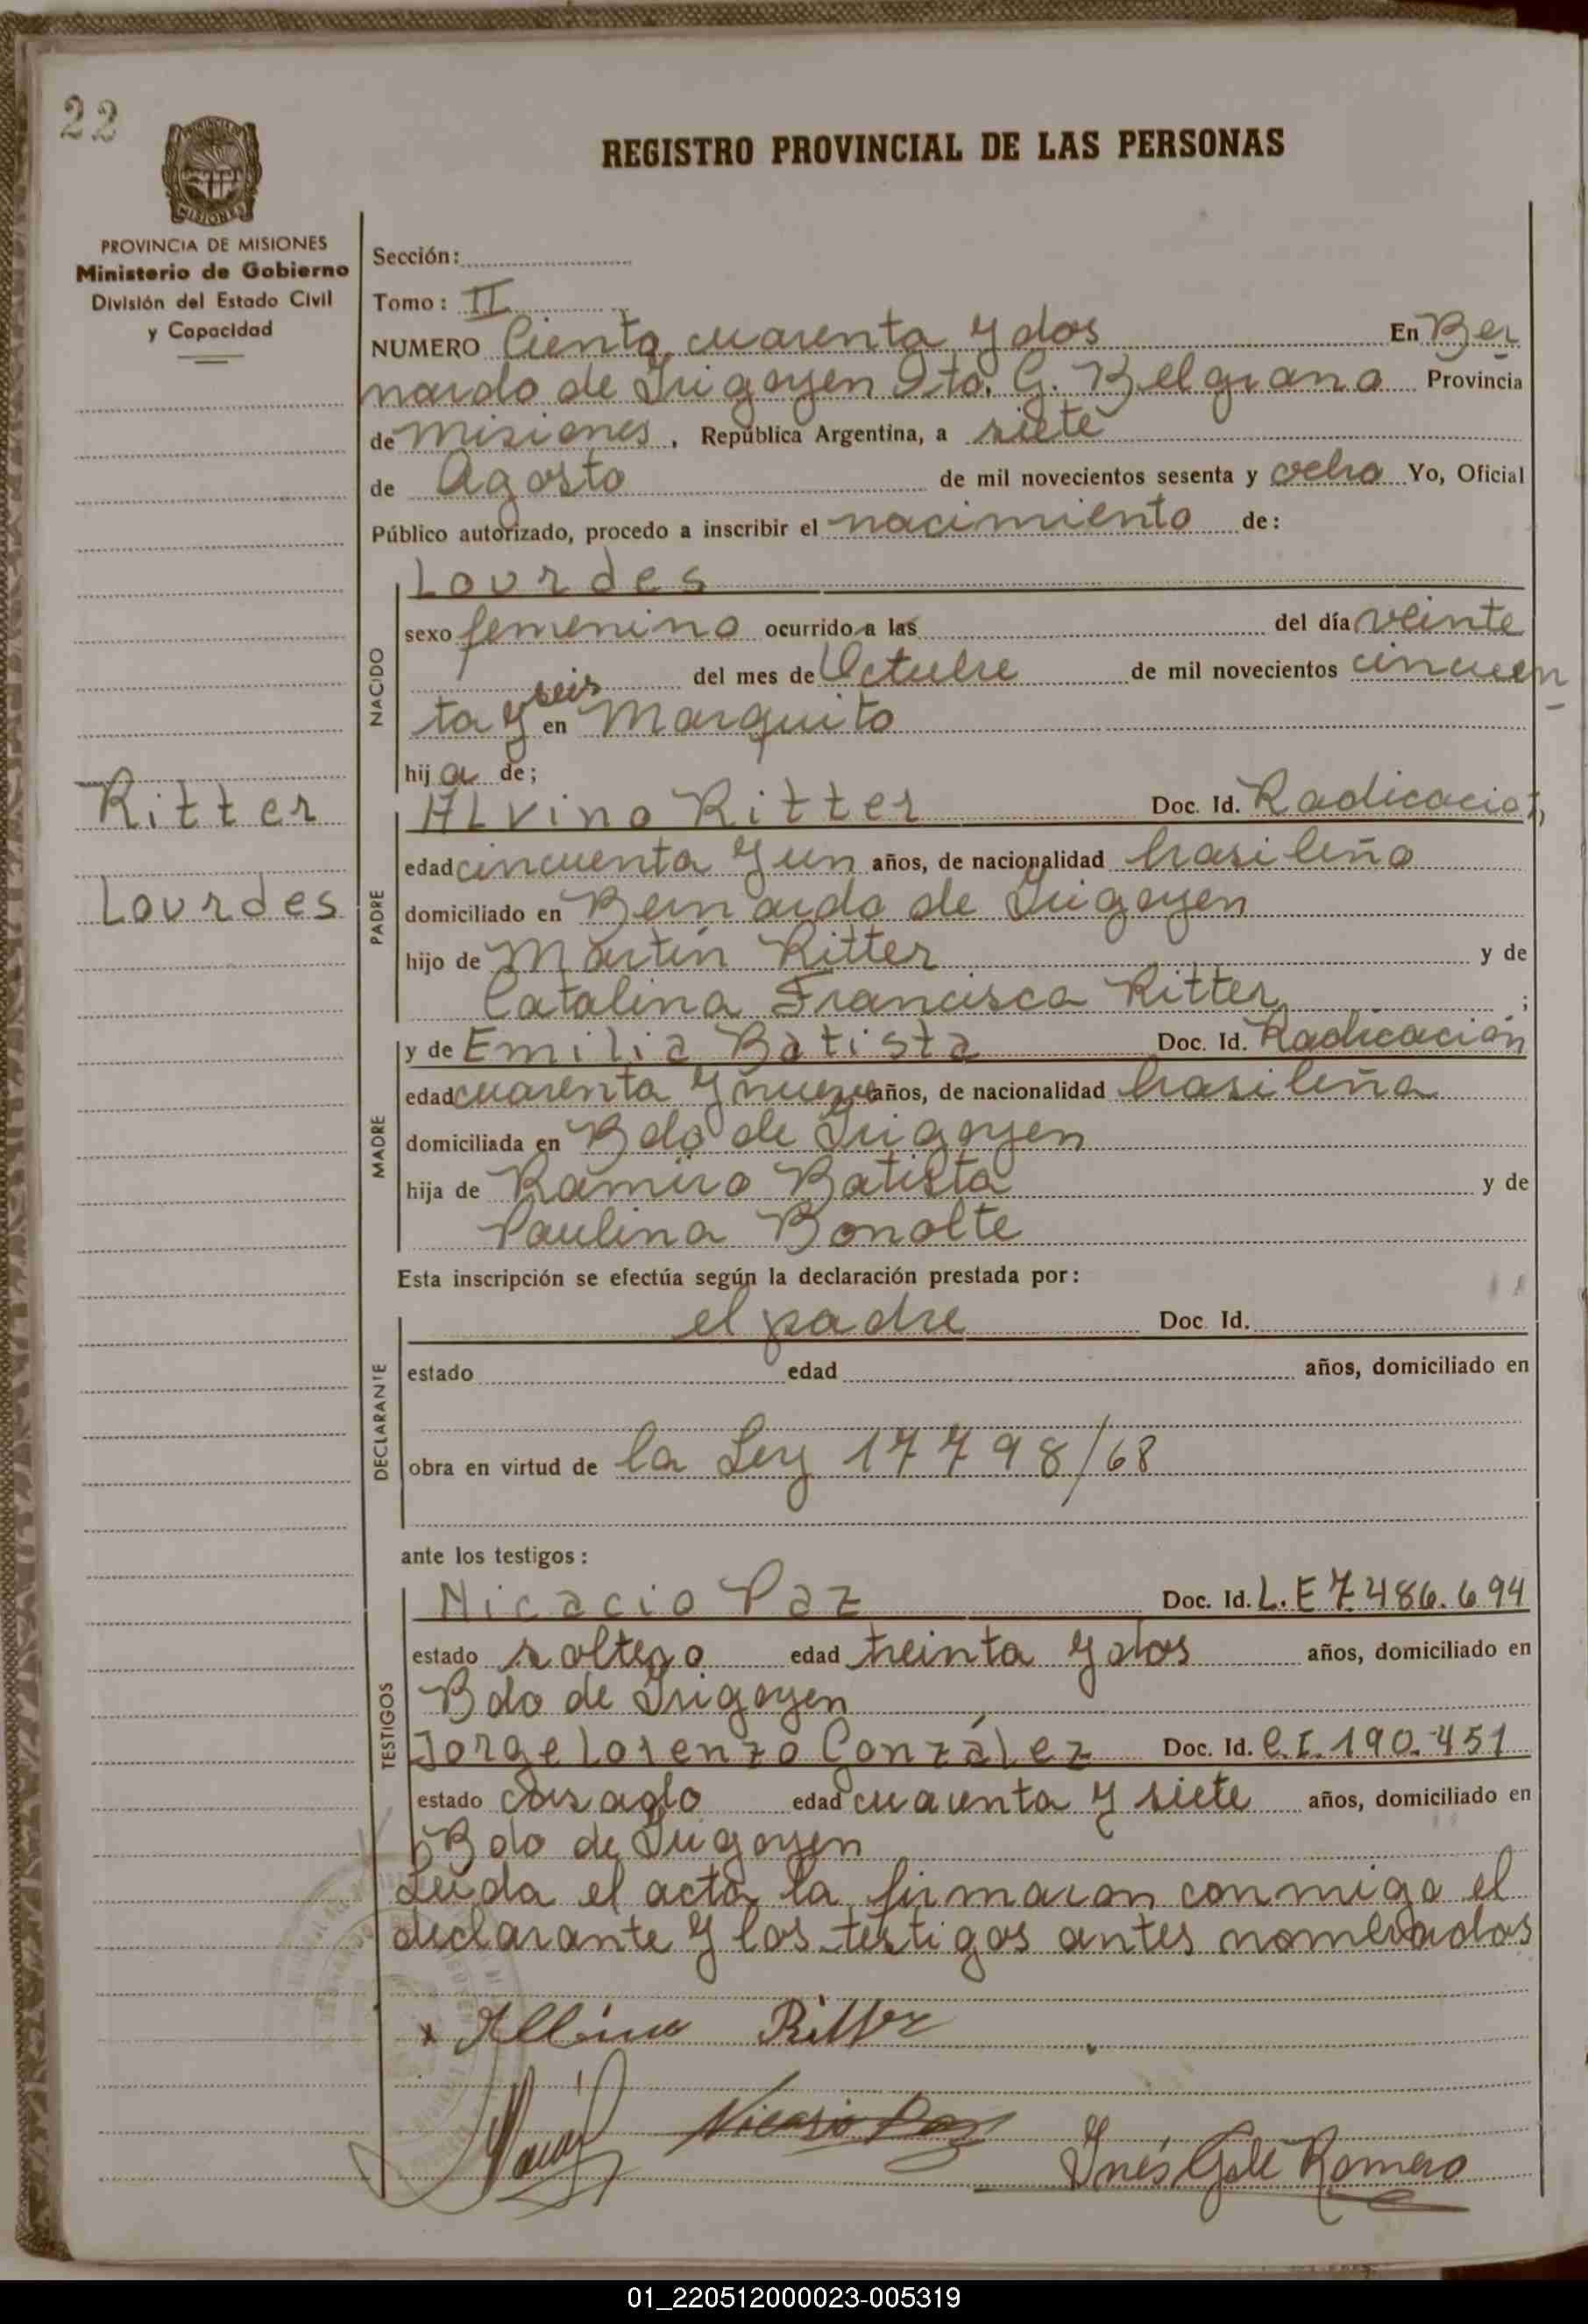 22
REGISTRO PROVINCIAL DE LAS PERSONAS
PROVINCIA DE MISIONES
Ministerio de Gobierno
División del Estado Civil
y Capacidad
Sección:
Tomo: II
NUMERO Ciento cuarenta y dos En Ber
nardo de Irigoyen Dto. G. Belgrano Provincia
de Misiones, República Argentina, a siete
de Agosto de mil novecientos sesenta y ocho Yo, Oficial
Público autorizado, procedo a inscribir el nacimiento de:
NACIDO
Lourdes
sexo femenino ocurrido a las del día veinte
del mes de Octubre de mil novecientos cincuen
ta y seis en Marquito
hija de;
Ritter
Lourdes
PADRE
Alvino Ritter Doc. Id. Radicación
edad cincuenta y un años, de nacionalidad brasileño
domiciliado en Bernardo de Irigoyen
hijo de Martín Ritter y de
Catalina Francisca Ritter ;
MADRE
y de Emilia Batista Doc. Id. Radicación
edad cuarenta y nueve años, de nacionalidad brasileña
domiciliada en Bdo de Irigoyen
hija de Ramiro Batista y de
Paulina Bonolte
Esta inscripción se efectúa según la declaración prestada por:
DECLARANTE
el padre Doc. Id.
estado edad años, domiciliado en
obra en virtud de la Ley 17798/68
ante los testigos:
TESTIGOS
Nicacio Paz Doc. Id. L.E 7.486.694
estado soltero edad treinta y dos años, domiciliado en
Bdo de Irigoyen
Jorge Lorenzo González Doc. Id. C.I. 190.451
estado casado edad cuarenta y siete años, domiciliado en
Bdo de Irigoyen
Leída el acta, la firmaron conmigo el
declarante y los testigos antes nombrados
x Albino Ritter
Nicasio Paz
Inés Romero
01_220512000023-005319